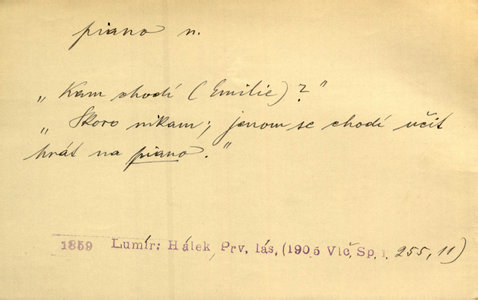 piano n.
„Kam chodí (Emilie)?"
„Skoro nikam; jenom se chodí učit
hrát na piano."
1859 Lumír: Hálek, Prv. lás, (1905 Vlč, Sp. I. 255, 11)